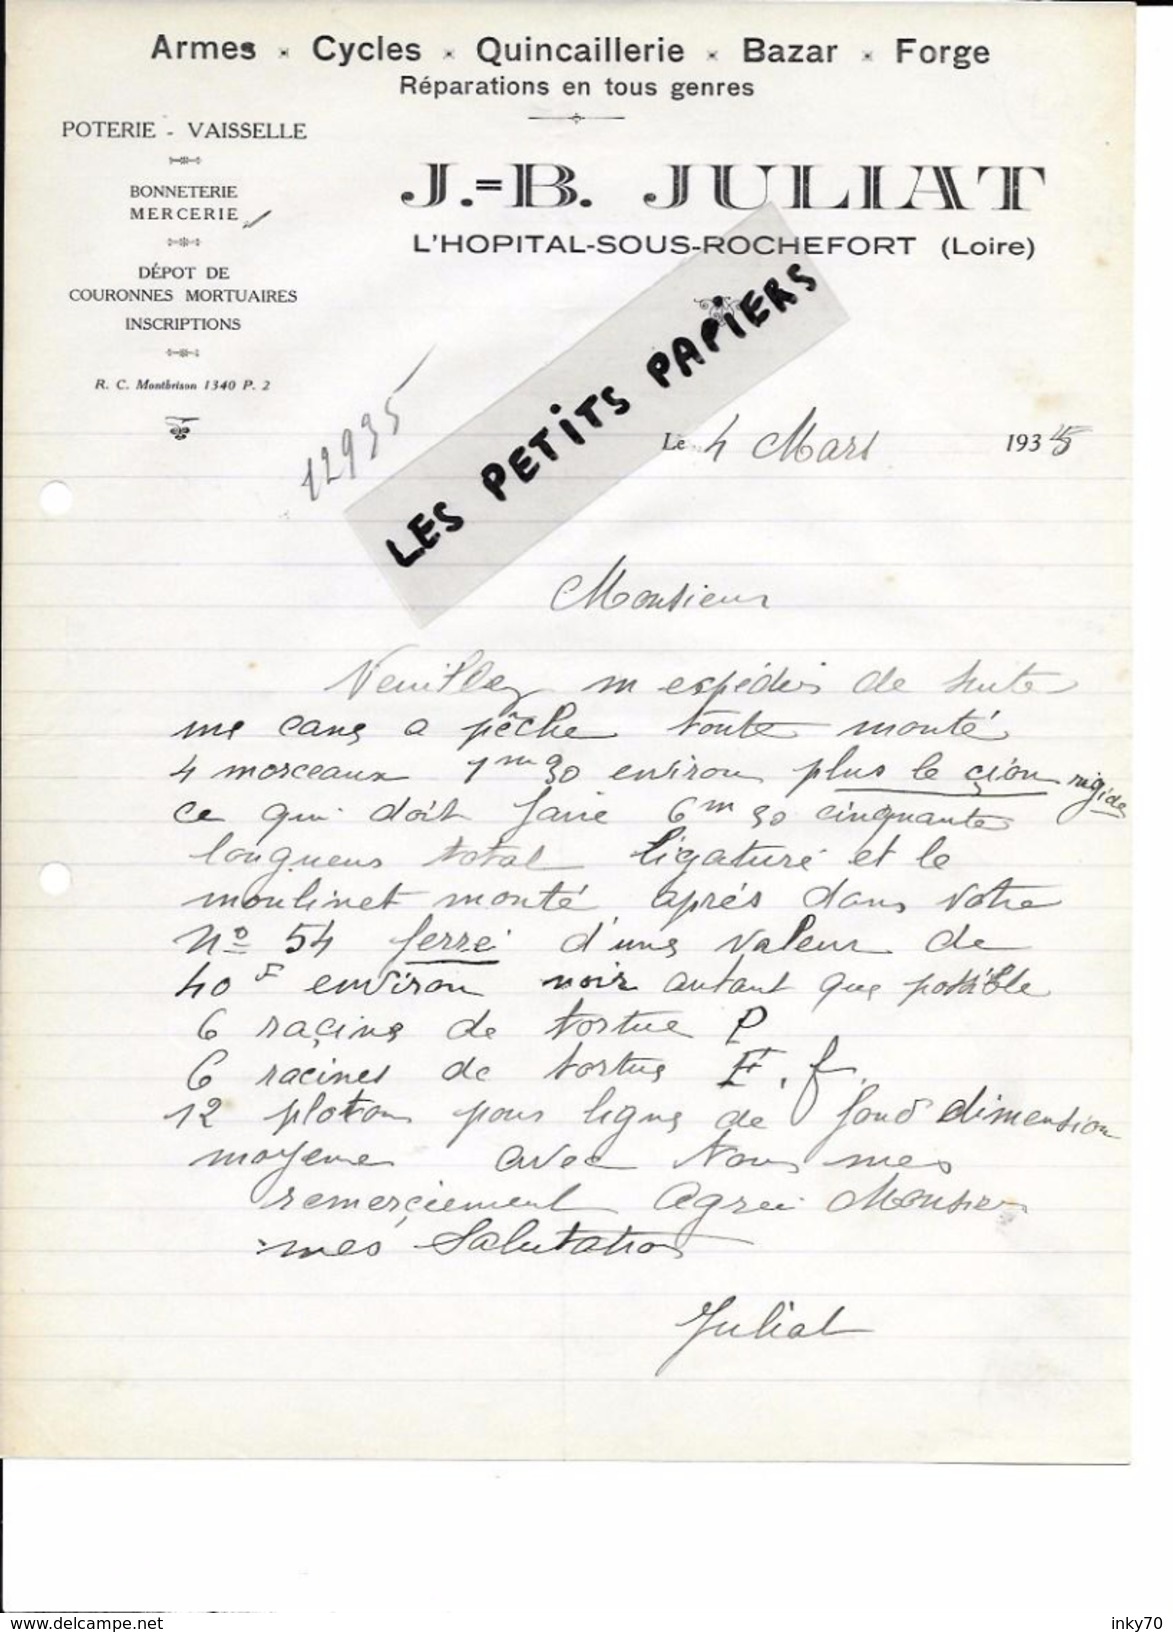 Armes × Cycles × Quincaillerie × Bazar × Forge
Réparations en tous genres
POTERIE - VAISSELLE
BONNETERIE
MERCERIE
DÉPOT DE
COURONNES MORTUAIRES
INSCRIPTIONS
R. C. Montbrison 1340 P. 2
J.-B. JULIAT
L'HOPITAL-SOUS-ROCHEFORT (Loire)
LES PETITS PAPIERS
12935
Le 4 Mars 1935
Monsieur
Veuillez m espédier de suite
une cane a pêche toute monté
4 morceaux 1m30 environ plus le çion rigide
ce qui doit faire 6m50 cinquante
longueur total ligaturé et le
moulinet monté aprés dans votre
No 54 ferré d'une valeur de
40 F environ noir autant que possible
6 raçine de tortue P
6 racines de tortue F. f.
12 ploton pour ligne de fond dimension
moyene avec tous mes
remerçiement Agrée Monsieur
mes Salutation
Juliat
www.delcampe.net
inky70